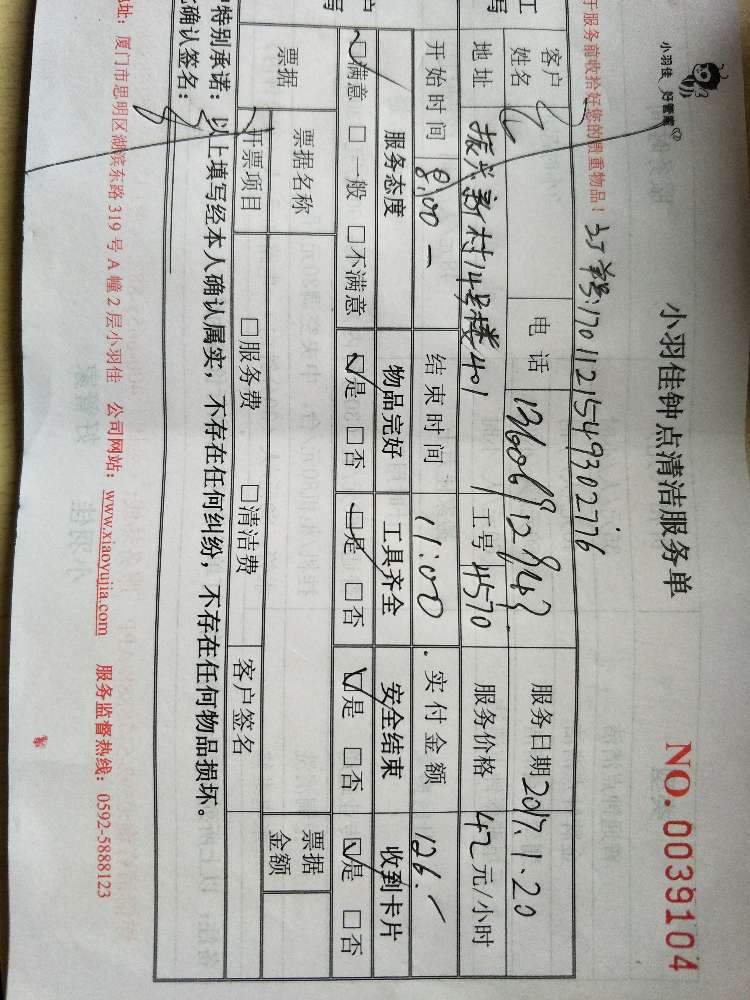 小羽佳 好管家
小羽佳钟点清洁服务单
NO. 0039104
于服务前收拾好您的贵重物品!
订单号:17011215549302776
客户姓名 电话 服务日期 2017.1.20
地址 振兴新村14号楼401 工号 4570 服务价格 42元/小时
开始时间 8:00 结束时间 11:00 实付金额 126.
服务态度 物品完好 工具齐全 安全结束 收到卡片
☑满意 □一般 □不满意 ☑是 □否 ☑是 □否 ☑是 □否 ☑是 □否
票据 票据名称 票据金额
开票项目 □服务费 □清洁费 客户签名
特别承诺:以上填写经本人确认属实,不存在任何纠纷,不存在任何物品损坏。
确认签名:
址:厦门市思明区湖滨东路 319 号 A 幢 2 层小羽佳 公司网站:www.xiaoyujia.com 服务监督热线:0592-5888123